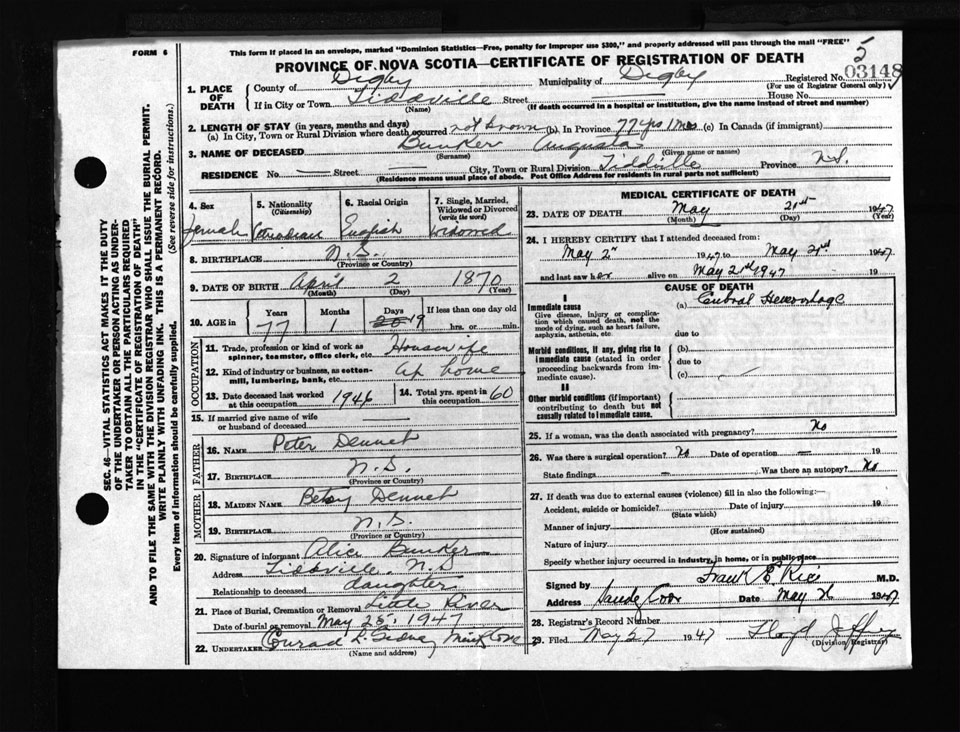 FORM 6
This form if placed in an envelope, marked "Dominion Statistics—Free, penalty for improper use $300," and properly addressed will pass through the mail "FREE"
PROVINCE OF NOVA SCOTIA—CERTIFICATE OF REGISTRATION OF DEATH
5
Registered No. 03148
(For use of Registrar General only)
1. PLACE OF DEATH
County of Digby Municipality of Digby
If in City or Town Tiddville Street House No.
(Name) (If death occurred in a hospital or institution, give the name instead of street and number)
2. LENGTH OF STAY (in years, months and days)
(a) In City, Town or Rural Division where death occurred not known (b). In Province 77 yrs 1 mos (c) In Canada (if immigrant)
3. NAME OF DECEASED Bunker Augusta
(Surname) (Given name or names)
RESIDENCE No. — Street City, Town or Rural Division Tiddville Province N.S.
(Residence means usual place of abode. Post Office Address for residents in rural parts not sufficient)
4. Sex
Female
5. Nationality
(Citizenship)
Canadian
6. Racial Origin
English
7. Single, Married, Widowed or Divorced
(write the word)
Widowed
8. BIRTHPLACE N.S.
(Province or Country)
9. DATE OF BIRTH April 2 1870
(Month) (Day) (Year)
10. AGE in
Years Months Days If less than one day old
77 1 19 hrs. or min.
OCCUPATION
11. Trade, profession or kind of work as spinner, teamster, office clerk, etc. Housewife
12. Kind of industry or business, as cotton-mill, lumbering, bank, etc. At home
13. Date deceased last worked at this occupation 1946
14. Total yrs. spent in this occupation 60
15. If married give name of wife or husband of deceased
FATHER
16. NAME Peter Dennet
17. BIRTHPLACE N.S.
(Province or Country)
MOTHER
18. MAIDEN NAME Betsy Dennet
19. BIRTHPLACE N.S.
(Province or Country)
20. Signature of informant Alice Bunker
Address Tiddville N.S
Relationship to deceased daughter
21. Place of Burial, Cremation or Removal Little River
Date of burial or removal May 25, 1947
22. UNDERTAKER Conrad L. Gidney Mink Cove
(Name and address)
MEDICAL CERTIFICATE OF DEATH
23. DATE OF DEATH May 21st 1947
(Month) (Day) (Year)
24. I HEREBY CERTIFY that I attended deceased from:
May 2nd 1947 to May 21st 1947
and last saw her alive on May 21st 1947 19
CAUSE OF DEATH
I
Immediate cause
Give disease, injury or complication which caused death, not the mode of dying, such as heart failure, asphyxia, asthenia, etc.
(a) Cerebral Hemorrhage
due to
Morbid conditions, if any, giving rise to immediate cause (stated in order proceeding backwards from immediate cause).
(b)
due to
(c)
II
Other morbid conditions (if important) contributing to death but not causally related to immediate cause.
25. If a woman, was the death associated with pregnancy? No
26. Was there a surgical operation? No Date of operation — 19
State findings — Was there an autopsy? No
27. If death was due to external causes (violence) fill in also the following:—
Accident, suicide or homicide? Date of injury 19
(State which)
Manner of injury
(How sustained)
Nature of injury
Specify whether injury occurred in Industry, in home, or in public place
Signed by Frank E Rice M.D.
Address Sandy Cove Date May 26 1947
28. Registrar's Record Number
29. Filed May 27 1947 Lloyd
(Division Registrar)
SEC. 46—VITAL STATISTICS ACT MAKES IT THE DUTY
OF THE UNDERTAKER OR PERSON ACTING AS UNDER-
TAKER TO OBTAIN ALL THE PARTICULARS REQUIRED
IN THE "CERTIFICATE OF REGISTRATION OF DEATH"
AND TO FILE THE SAME WITH THE DIVISION REGISTRAR WHO SHALL ISSUE THE BURIAL PERMIT.
WRITE PLAINLY WITH UNFADING INK. THIS IS A PERMANENT RECORD.
Every item of information should be carefully supplied. (See reverse side for instructions.)